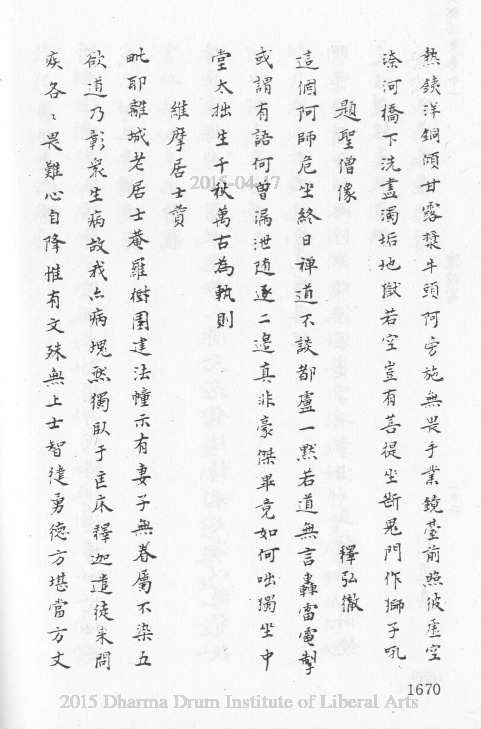 熱鐵洋銅傾甘露漿牛頭阿旁施無畏手業鏡臺前照彼虛空
渿河橋下洗盡濁垢地獄若空豈有菩提坐斷鬼門作獅子吼
題聖僧像
釋弘徹
這個阿師危坐終日禪道不談都盧一默若道無言轟雷電掣
或謂有語何曾漏泄随逐二邊真非豪傑畢竟如何咄獨坐中
堂太拙生千秋萬古為軌則
維摩居士贊
毗耶離城老居士菴羅樹園建法幢示有妻子無眷屬不染五
欲道乃彰衆生病故我亦病塊然獨臥于匡床釋迦遣徒来問
疾各〻畏難心自降惟有文殊無上士智達勇德方堪當方丈
1670
2015-04-17
2015 Dharma Drum Institute of Liberal Arts